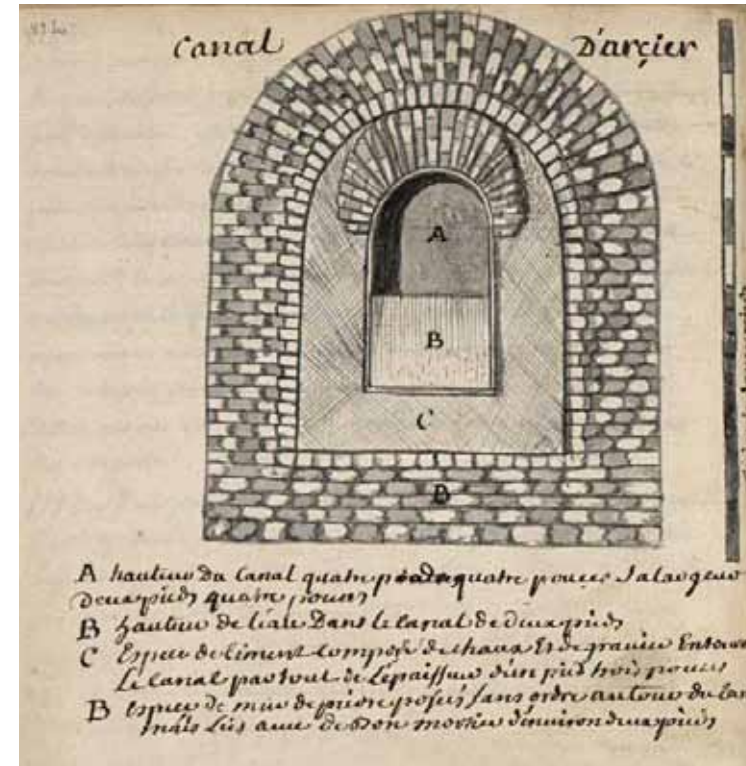 Canal D'arçier
A
B
C
B
A hauteur du Canal quatre pieds quatre pouces Sa largeur
Deux pieds quatre pouces
B hauteur de l'eau Dans le canal de deux pieds
C Espece de ciment composé de chaux Et de gravier Entoure
Le canal par tout de L'epaisseur d'un pied trois pouces
B espece de mur de pierre posées sans ordre autour du
mais Liés avec de bon mortier d'environ deux pieds